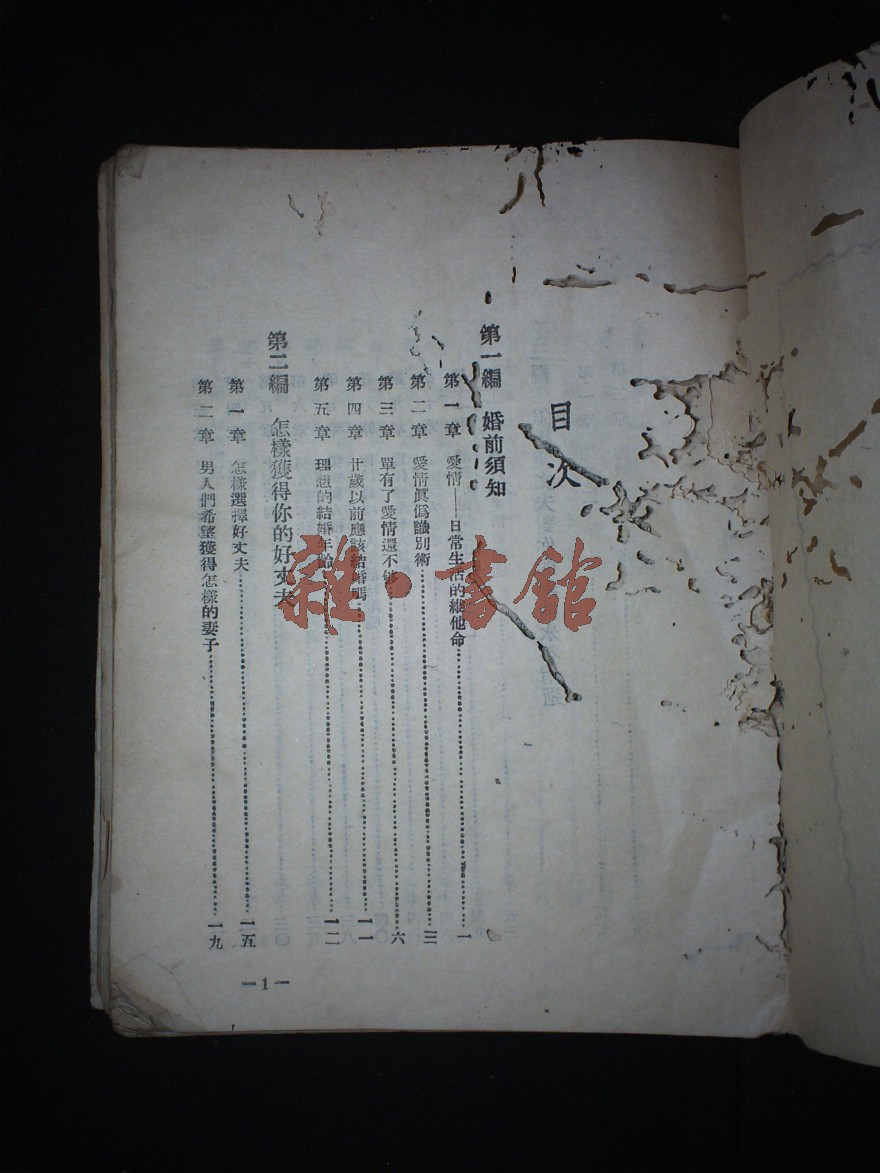 目次
第一編 婚前須知
第一章 愛情——日常生活的維他命……一
第二章 愛情眞僞識別術……三
第三章 單有了愛情還不够……六
第四章 廿歲以前應該結婚嗎……一一
第五章 理想的結婚年齡……一二
第二編 怎樣獲得你的好丈夫
第一章 怎樣選擇好丈夫……一五
第二章 男人們希望獲得怎樣的妻子……一九
—1—
雜·書館